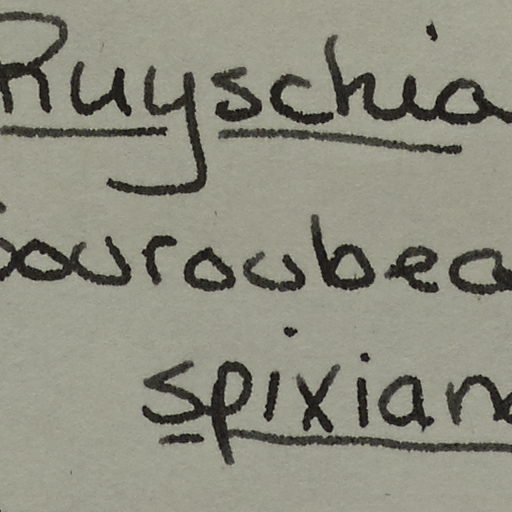 Ruyschia
souroubea
spixiana